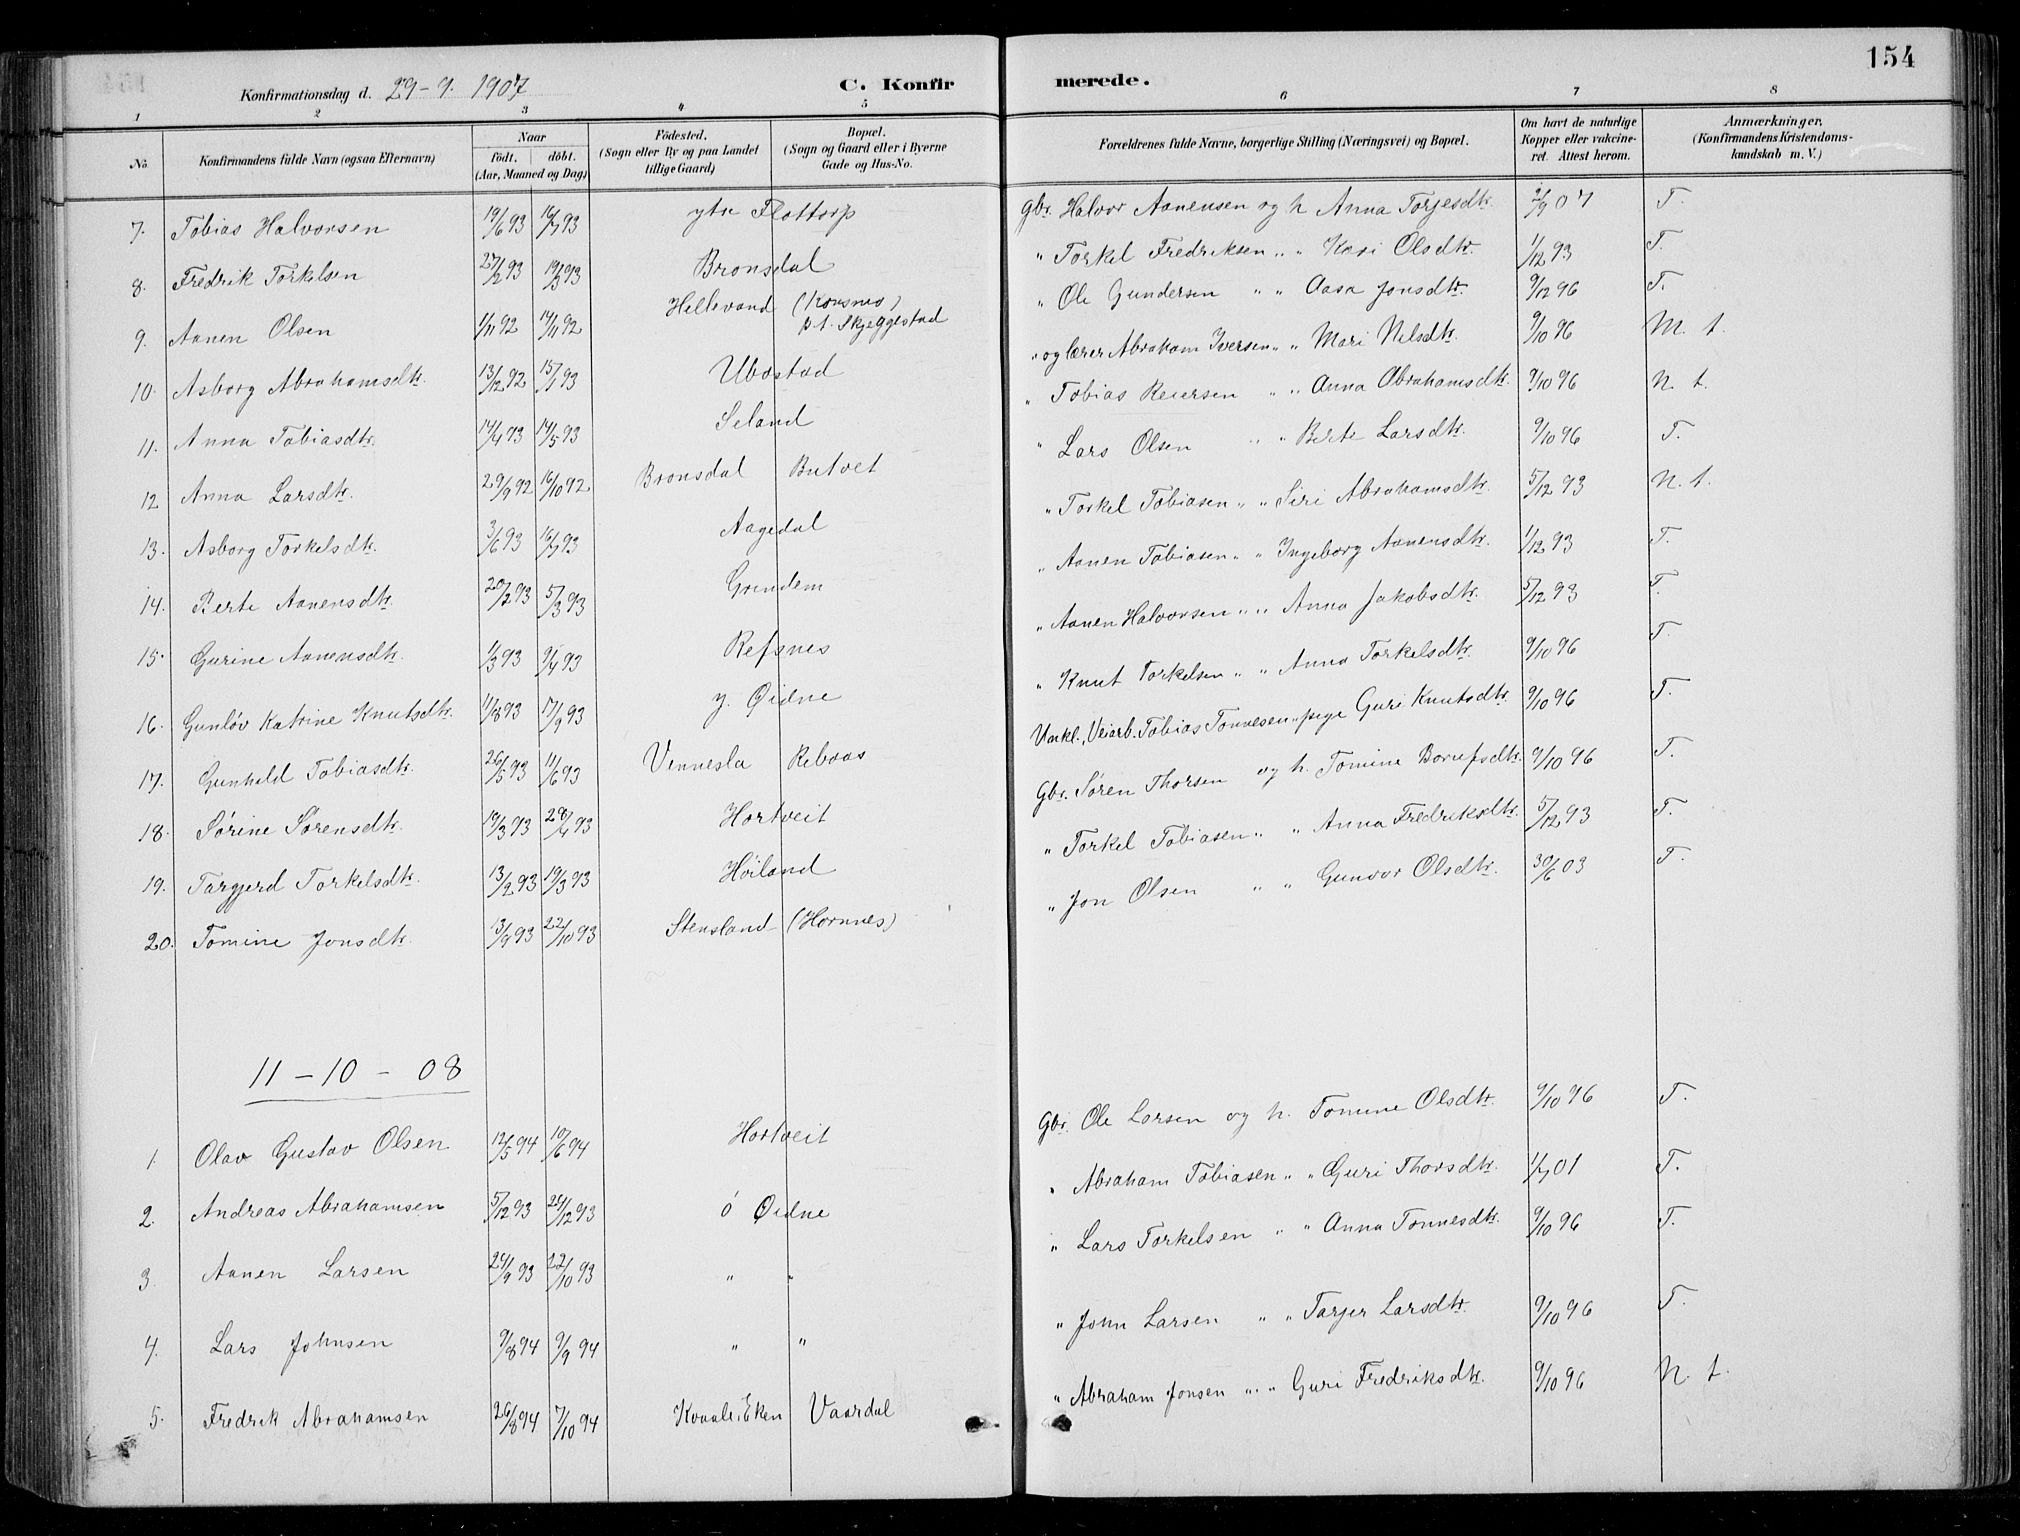 154
Konfirmationsdag d. 29-9. 1907 C. Konfir merede.
1 2 3 4 5 6 7 8
No. Konfirmandens fulde Navn (ogsaa Efternavn) Naar født. døbt. (Aar, Maaned og Dag) Fødested. (Sogn eller By og paa Landet tillige Gaard) Bopæl. (Sogn og Gaard eller i Byerne Gade og Hus-No. Forældrenes fulde Navne, borgerlige Stilling (Næringsvei) og Bopæl. Om havt de naturlige Kopper eller vakcineret. Attest herom. Anmærkninger. (Konfirmandens Kristendomskundskab m. V.)
7. Tobias Halvorsen 19/6 93 16/7 93 ytre Flottorp Gbr. Halvor Aanensen og h Anna Torjesdtr. 2/9 07 T.
8. Fredrik Torkelsen 27/2 93 19/3 93 Bronsdal " Torkel Fredriksen " " Kari Olsdtr. 1/12 93 T.
9. Aanen Olsen 1/11 92 14/11 92 Hellevand (Konsmo) p.t. Skjeggestad " Ole Gundersen " " Aasa Jonsdtr. 9/12 96 T.
10. Asborg Abrahamsdtr. 13/12 92 15/1 93 Ubostad " og lærer Abraham Iversen " " Mari Nilsdtr. 9/10 96 M. t.
11. Anna Tobiasdtr. 14/4 93 14/5 93 Seland " Tobias Reiersen " " Anna Abrahamsdtr. 9/10 96 N. t.
12 Anna Larsdtr. 29/9 92 16/10 92 Bronsdal Butvet " Lars Olsen " " Berte Larsdtr. 9/10 96 T.
13. Asborg Torkelsdtr. 3/6 93 16/7 93 Aagedal " Torkel Tobiasen " " Siri Abrahamsdtr. 5/12 93 N. t.
14. Berte Aanensdtr. 20/2 93 5/3 93 Grindem " Aanen Tobiasen " " Ingeborg Aanensdtr. 1/12 93 T.
15. Gurine Aanensdtr. 1/3 93 9/4 93 Refsnes " Aanen Halvorsen " " Anna Jakobsdtr. 5/12 93 T.
16. Gunløv Katrine Knutsdtr. 11/8 93 17/9 93 y. Øidne " Knut Torkelsen " " Anna Torkelsdtr. 9/10 96 T.
17. Gunhild Tobiasdtr. 26/5 93 11/6 93 Vennesla Rebaas Unkl., Veiarb. Tobias Tønnesen " pige Guri Knutsdtr. 9/10 96 T.
18. Sørine Sørensdtr. 19/3 93 28/4 93 Hortveit Gbr. Søren Thorsen og h. Tomine Borufsdtr. 9/10 96 T.
19. Targjerd Torkelsdtr. 13/2 93 19/3 93 Høiland " Torkel Tobiasen " " Anna Fredriksdtr. 5/12 93 T.
20. Tomine Jonsdtr. 13/9 93 22/10 93 Stensland (Hornnes) " Jon Olsen " " Gunvor Olsdtr. 30/6 03 T.
11 - 10 - 08
1. Olav Gustav Olsen 12/5 94 10/6 94 Hortveit Gbr. Ole Larsen og h. Tomine Olsdtr. 9/10 96 T.
2. Andreas Abrahamsen 5/12 93 24/12 93 ø Øidne " Abraham Tobiasen " " Guri Thorsdtr. 1/7 01 T.
3. Aanen Larsen 24/9 93 22/10 93 " " " Lars Torkelsen " " Anna Tønnesdtr. 9/10 96 T.
4. Lars Johnsen 9/8 94 9/9 94 " " " John Larsen " " Tarjer Larsdtr. 9/10 96 T.
5. Fredrik Abrahamsen 26/8 94 7/10 94 Kvaale i Eken Vaardal " Abraham Jonsen " " Guri Fredriksdtr. 9/10 96 N. t.